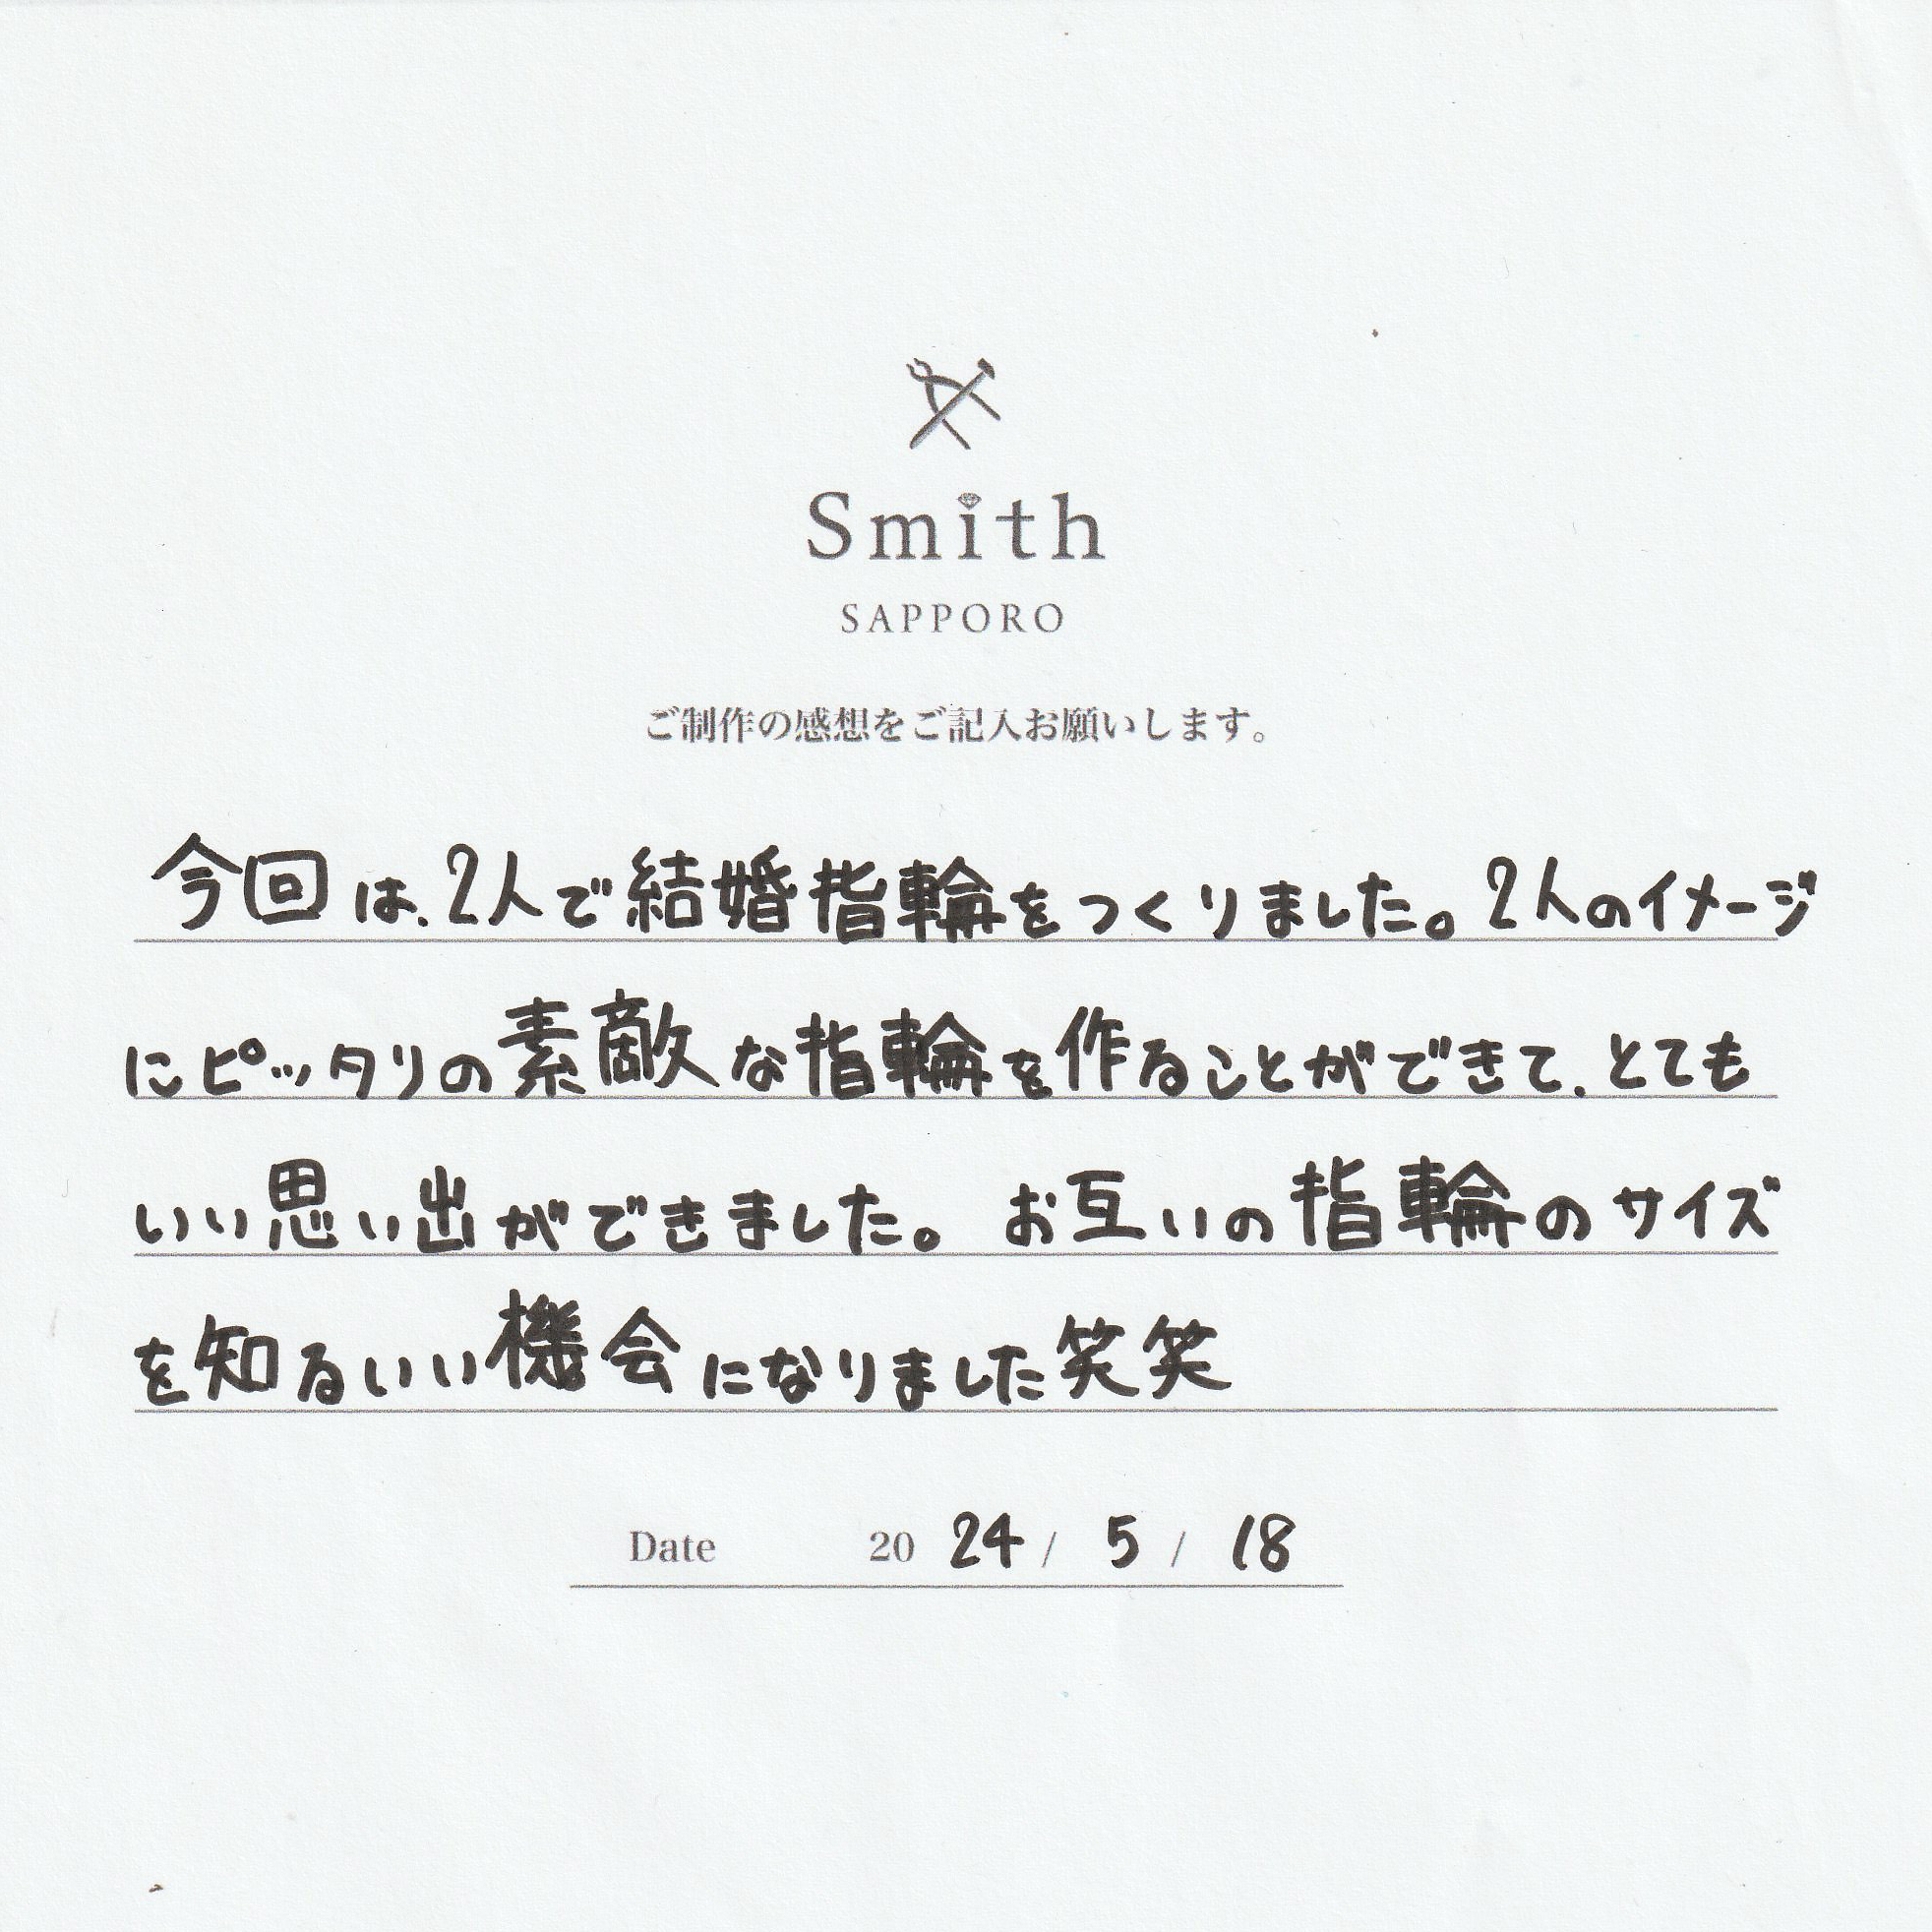 Smith
SAPPORO
ご制作の感想をご記入お願いします。
今回は、2人で結婚指輪をつくりました。2人のイメージ
にピッタリの素敵な指輪を作ることができて、とても
いい思い出ができました。お互いの指輪のサイズ
を知るいい機会になりました笑笑
Date 20 24 / 5 / 18